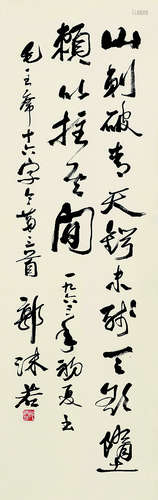 山刺破青天鍔未残天欲墮
賴以拄其間 一九六三年初夏书
毛主席十六字令第三首 郭沫若